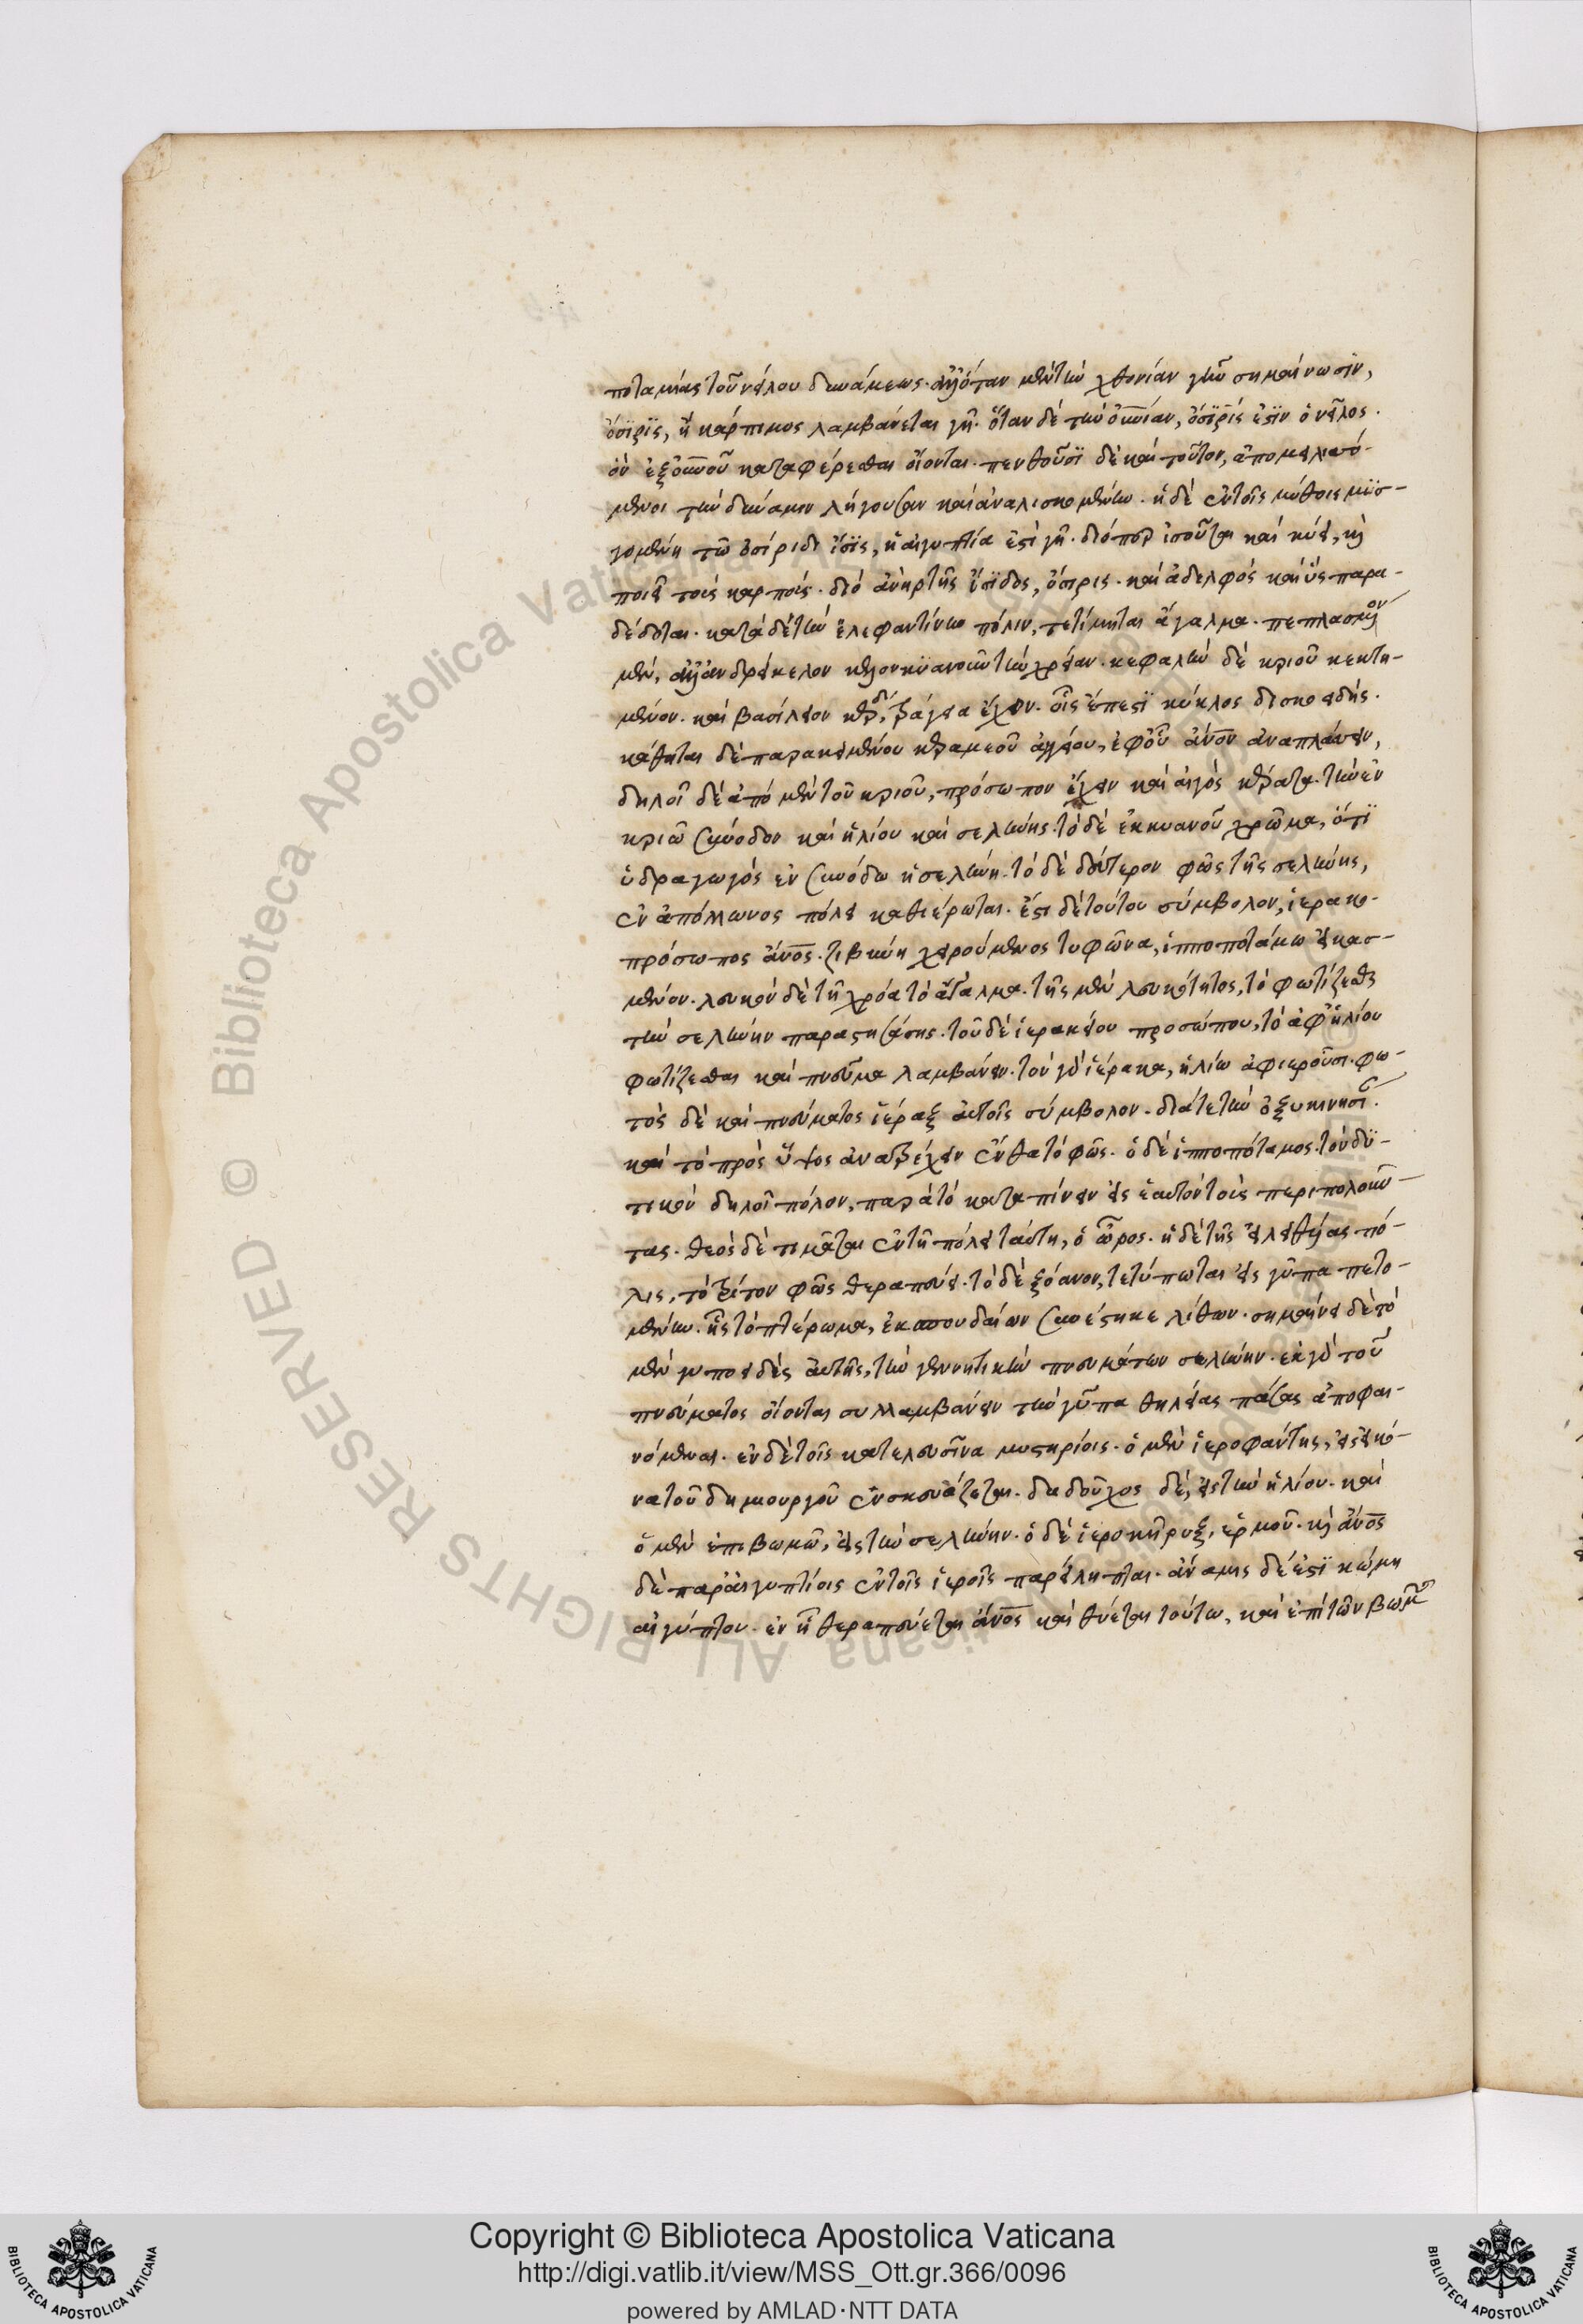 ποταμίας τοῦ νείλου δυνάμεως. ἀλλ' ὅταν μὲν τὴν χθονίαν γῆν σημαίνωσϊν,
ὄσϊρϊς, ἡ κάρπιμος λαμβάνεται γῆ. ὅταν δὲ τὴν οὐνίαν, ὄσϊρίς ἐστϊν ὁ νεῖλος.
ὃν ἐξ οὐνοῦ καταφέρεσθαι οἴονται. πενθοῦσϊ δὲ καὶ τοῦτον, ἀπομειλισσό-
μενοι τὴν δύναμιν λήγουσαν καὶ ἀναλισκομένην. ἡ δὲ ἐν τοῖς μύθοις μϊσ-
γομένη τῶ ὀσίριδι ἶσϊς, ἡ αἰγυπτία ἐστὶ γῆ. διόπερ ἰσοῦται καὶ κύει, καὶ
ποιεῖ τοὺς καρπούς. διὸ ἀνὴρ τῆς ἴσϊδος, ὄσιρις. καὶ ἀδελφὸς καὶ ὑς παρα-
δέδοται. κατὰ δὲ τὴν ἐλεφαντίνην πόλιν, τετίμηται ἄγαλμα. πεπλασμένον
μὲν, ἀλλ' ἀνδρείκελον καθήμενον κϋανοῦν τὴν χρόαν. κεφαλὴν δὲ κριοῦ κεκτη-
μένον. καὶ βασίλειον κέρατα τράγεια ἔχον. οἷς ἔπεστϊ κύκλος δισκοειδής.
κάθηται δὲ παρακειμένου κεραμεοῦ ἀγγείου, ἐφ' οὗ ἄνον ἀναπλάσσειν,
δηλοῖ δὲ ἀπὸ μὲν τοῦ κριοῦ, πρόσωπον ἔχειν καὶ αἰγὸς κέρατα. τὴν ἐν
κριῶ σύνοδον καὶ ἡλίου καὶ σελήνης. τὸ δὲ ἐκ κυανοῦ χρῶμα, ὅτϊ
ὑδραγωγὸς ἐν συνόδω ἡ σελήνη. τὸ δὲ δεύτερον φῶς τῆς σελήνης,
ἐν ἀπόλλωνος πόλει καθιέρωται. ἔστι δὲ τούτου σύμβολον, ἱερακο-
πρόσωπος ἄνος. ζιβύνη χειρούμενος τυφῶνα, ἱπποποτάμω εἰκασ-
μένον. λευκὸν δὲ τῆ χρόα τὸ ἄγαλμα. τῆς μὲν λευκότητος, τὸ φωτίζεσθαι
τὴν σελήνην παραστησάσης. τοῦ δὲ ἱερακείου προσώπου, τὸ ἀφ' ἡλίου
φωτίζεσθαι καὶ πνεῦμα λαμβάνειν. τὸν γὰρ ἱέρακα, ἡλίω ἀφιεροῦσι. φω-
τὸς δὲ καὶ πνεύματος ἱέραξ αὐτοῖς σύμβολον. διά τε τὴν ὀξυκινησί.
καὶ τὸ πρὸς ὕψος ἀνατρέχειν ἔνθα τὸ φῶς. ὁ δὲ ἱπποπόταμος. τὸν δϋ-
τικὸν δηλοῖ πόλον, παρὰ τὸ καταπίνειν εἰς ἑαυτὸν τοὺς περιπολοῦν-
τας. θεὸς δὲ τιμᾶται ἐν τῆ πόλει ταύτη, ὁ ὧρος. ἡ δὲ τῆς εἰλειθυίας πό-
λις, τὸ τρίτον φῶς θεραπεύει. τὸ δὲ ξόανον, τετύπωται εἰς γῦπα πετο-
μένην. ἧς τὸ πτέρωμα, ἐκ σπουδαίων συνέστηκε λίθων. σημαίνει δὲ τὸ
μὲν γυποειδὲς αὐτῆς, τὴν γεννητικὴν πνευμάτων σελήνην. ἐκ γὰρ τοῦ
πνεύματος οἴονται συλλαμβάνειν τὴν γῦπα θηλείας πάσας ἀποφαι-
νόμενοι. ἐν δὲ τοῖς κατ' ελευσῖνα μυστηρίοις. ὁ μὲν ἱεροφάντης, εἰς εἰκό-
να τοῦ δημιουργοῦ ἐνσκευάζεται. δαδοῦχος δὲ, εἰς τὴν ἡλίου. καὶ
ὁ μὲν ἐπι βωμῶ, εἰς τὴν σελήνην. ὁ δὲ ἱεροκῆρυξ, ἑρμοῦ. καὶ ἄνος
δὲ παρ' ἀιγυπτίοις ἐν τοῖς ἱεροῖς παρείληπται. ἄναμις δέ ἐστϊ κώμη
αἰγύπτου. ἐν ἧ θεραπεύεται ἄνος καὶ θύεται τούτω, καὶ ἐπὶ τῶν βωμῶν